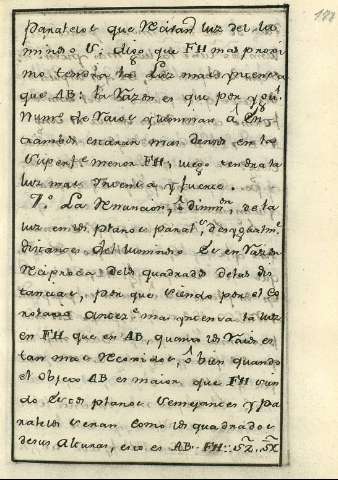 188
paralelos que reciban luz del lu
minoso S: digo que FH mas proxi
mo tendra la luz mas yntensa
que AB: la razon es que por ygu.l
Num.o de rayos yluminan a en
trambos estaran mas densos en la
superfi.e menor FH, luego tendra la
luz mas Yntensa y fuerte.
7.o La Remicion, ô diminu.on, de la
luz en los planos paral.s, desygualm.e
distantes del luminoso es en razon
Reciproca de los quadrados de las dis
tancias, por que siendo por el Co
rolario antec.e mas yntensa la luz
en FH que en AB, quanto los rayos es
tan mas recogidos, ô bien quando
el objeto AB es maior que FH sien
do estos planos semejantes y pa
ralelos seran como los quadrados
de sus alturas, esto es AB. FH:: SZ. SX